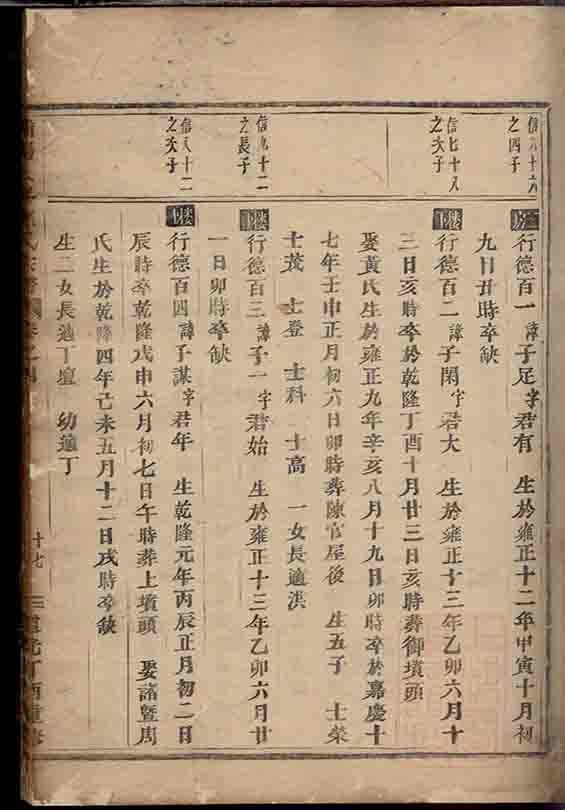 信六十六
之四子
行德百一諱子足字君有 生於雍正十二年甲寅十月初
九日丑時卒缺
信七十八
之次子
行德百二諱子閑字君大 生於雍正十三年乙卯六月十
三日亥時卒於乾隆丁酉十月廿三日亥時葬御墳頭
娶黃氏生於雍正九年辛亥八月十九日卯時卒於嘉慶十
七年壬申正月初六日卯時葬陳官屋後 生五子 士榮
士茂 士登 士科 士高 一女長適洪
之長子
行德百三諱子一字君始 生於雍正十三年乙卯六月廿
一日卯時卒缺
信八十二
之次子
行德百四諱子謀字君年 生乾隆元年丙辰正月初二日
辰時卒乾隆戊申六月初七日午時葬上墳頭 娶諸暨周
氏生於乾隆四年己未五月十二日戌時卒缺
生二女長適丁壇 幼適丁
廿七